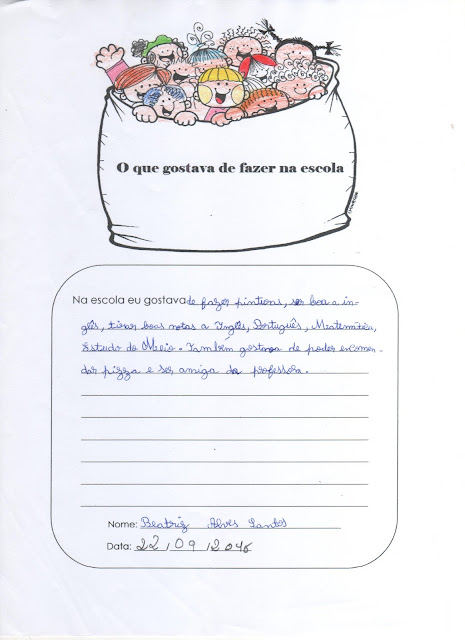 O que gostava de fazer na escola
Na escola eu gostava de fazer pinturas, ser boa a in-
glês, tirar boas notas a Inglês, Português, Matemática,
Estudo do Meio. Também gostava de poder encomen-
dar pizza e ser amiga da professora.
Nome: Beatriz Alves Santos
Data: 22/09/2016